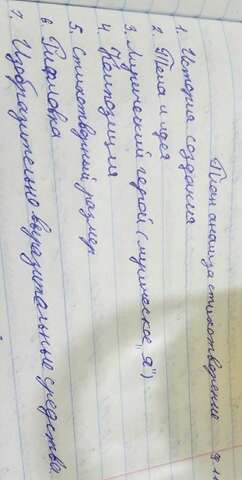 План анализа стихотворения
1. История создания
2. Тема и идея
3. Лирический герой (лирическое „Я")
4. Композиция
5. Стихотворный размер
6. Рифмовка
7. Изобразительно выразительные средства.